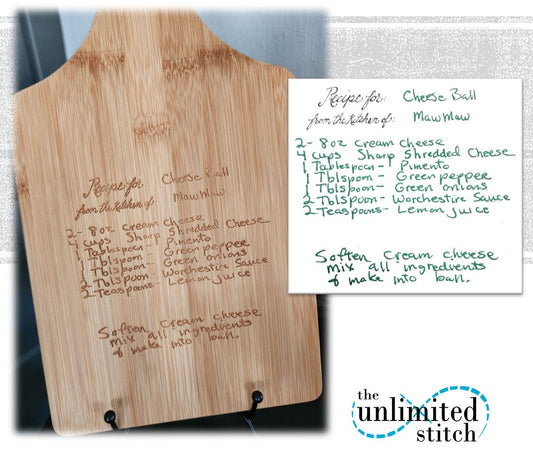 Recipe for: Cheese Ball
from the Kitchen of: MawMaw
2- 8oz Cream Cheese
4 cups Sharp Shredded Cheese
1 Tablespoon- Pimento
1 Tblspoon- Green pepper
1 Tblspoon- Green onions
2 Tblspoon- Worchestire Sauce
2 Teaspoons- Lemon juice
Soften Cream cheese
mix all ingredients
& make into ball.
Recipe for: Cheese Ball
from the Kitchen of: MawMaw
2- 8oz Cream Cheese
4 cups Sharp Shredded Cheese
1 Tablespoon- Pimento
1 Tblspoon- Green pepper
1 Tblspoon- Green onions
2 Tblspoon- Worchestire Sauce
2 Teaspoons- Lemon juice
Soften Cream cheese
mix all ingredients
& make into ball.
the
unlimited
stitch